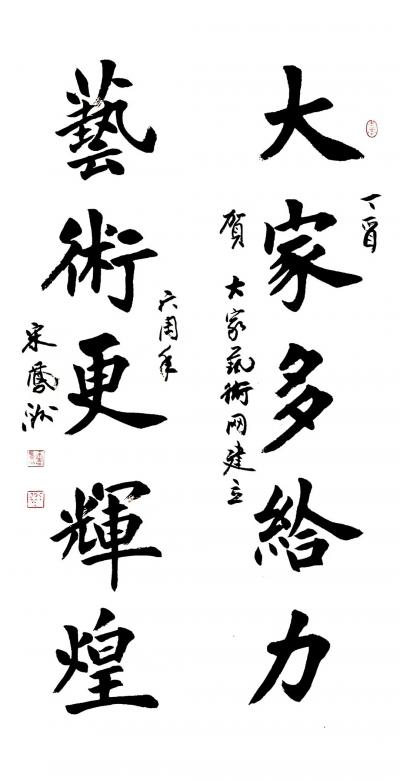 丁酉
大家多給力
賀大家藝術网建立
六周年
藝術更輝煌
宋鳳洲